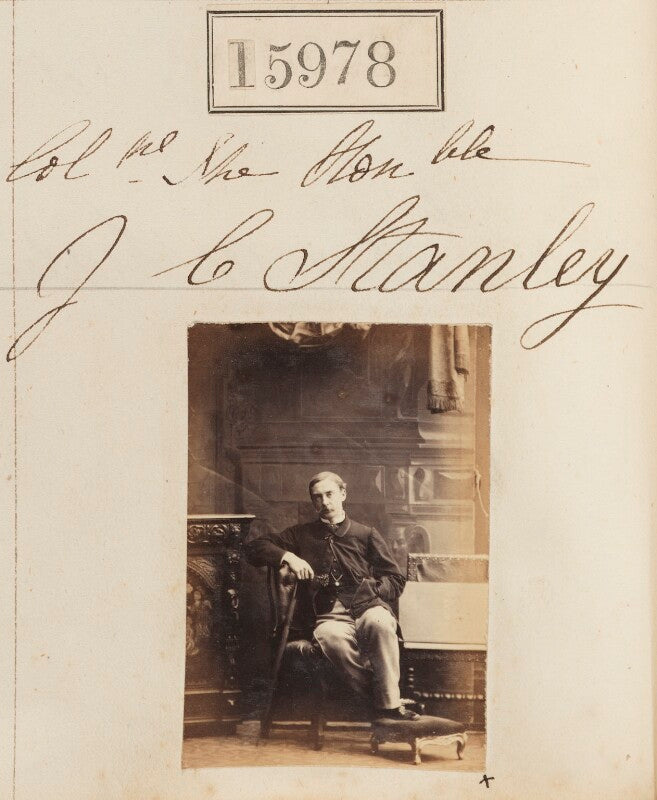 15978
Col ne The Honble
J C Stanley